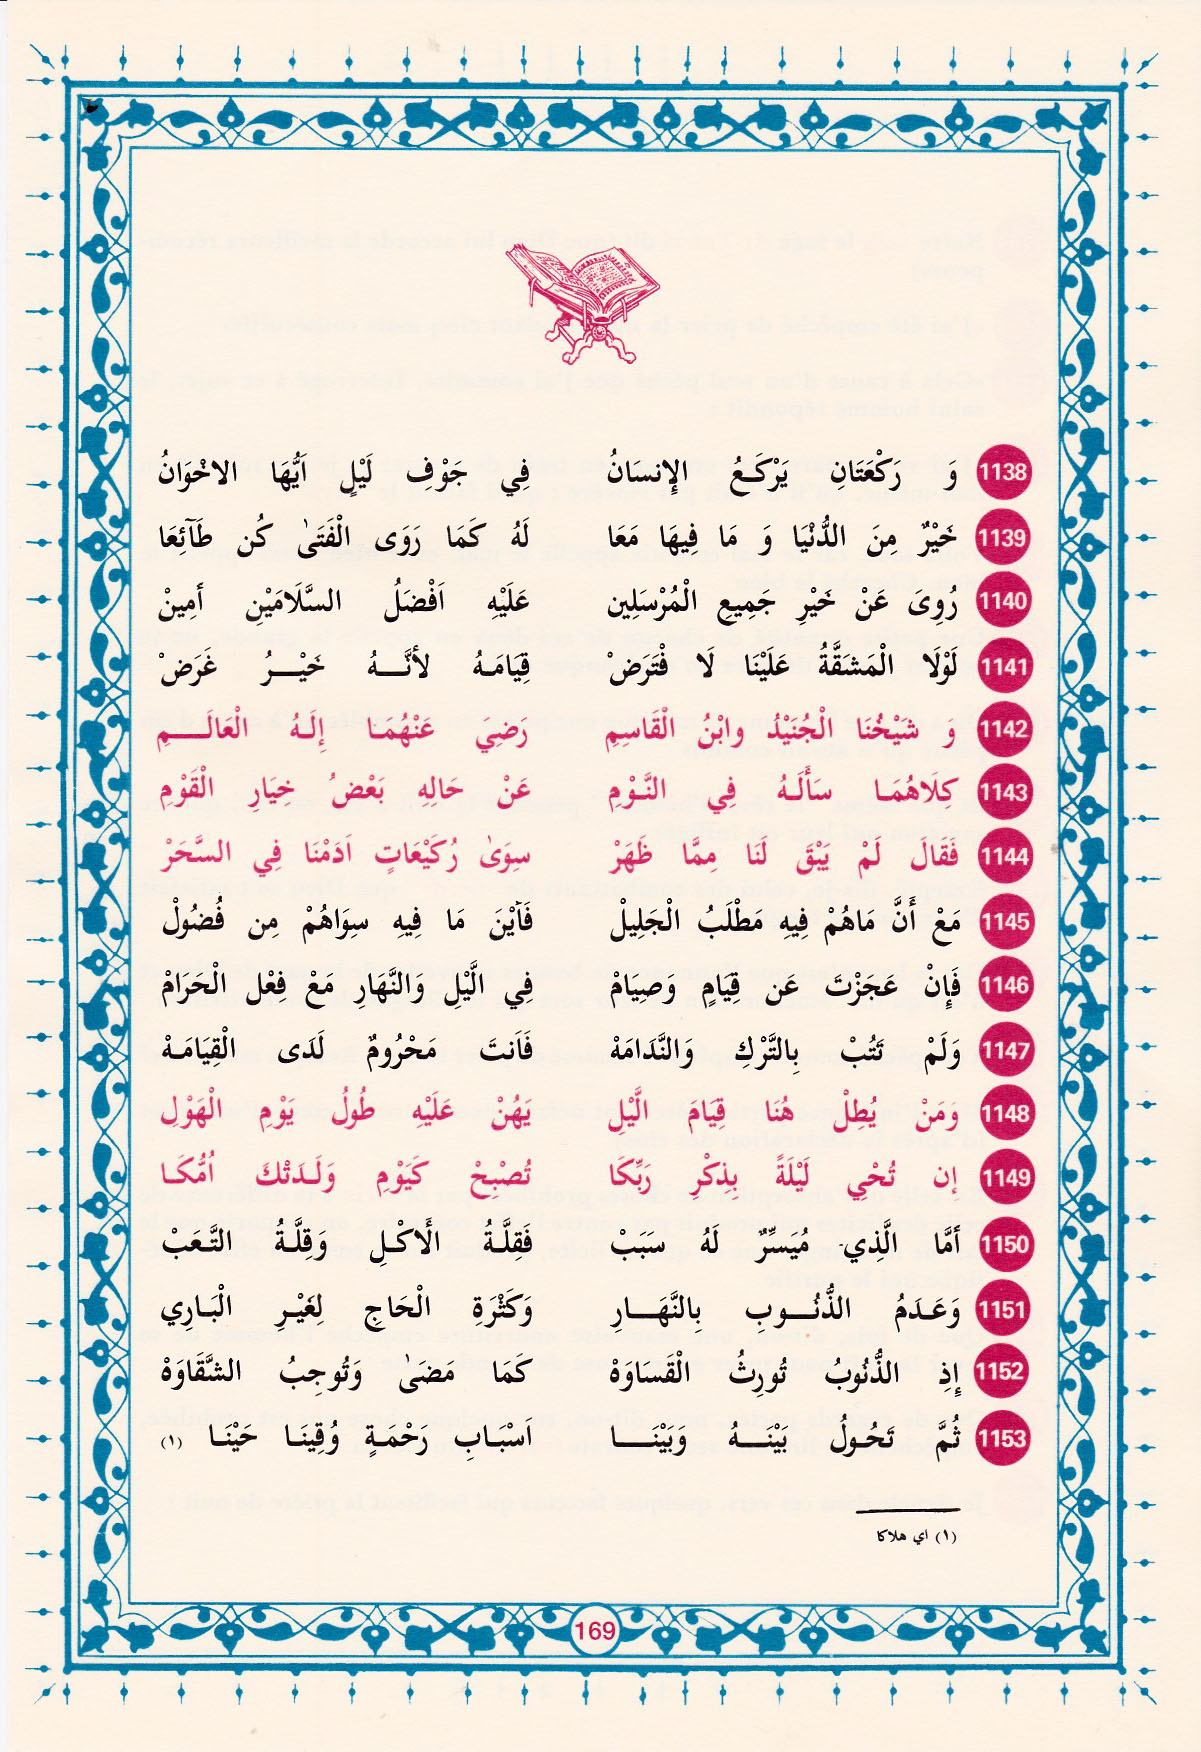 1138 وَ رَكْعَتَانِ يَرْكَعُ الإِنسَانُ فِي جَوْفِ لَيْلٍ اَيُّهَا الاخْوَانُ
1139 خَيْرٌ مِنَ الدُّنْيَا وَ مَا فِيهَا مَعَا لَهُ كَمَا رَوَى الْفَتَىٰ كُن طَآئِعَا
1140 رُوِىَ عَنْ خَيْرِ جَمِيعِ الْمُرْسَلِين عَلَيْهِ اَفْضَلُ السَّلَامَيْنِ أمِينْ
1141 لَوْلَا الْمَشَقَّةُ عَلَيْنَا لَا فْتَرَضْ قِيَامَهُ لأنَّهُ خَيْرُ غَرَضْ
1142 وَ شَيْخُنَا الْجُنَيْدُ وابْنُ الْقَاسِمِ رَضِيَ عَنْهُمَا إِلَهُ الْعَالَمِ
1143 كِلَاهُمَا سَأَلَهُ فِي النَّوْمِ عَنْ حَالِهِ بَعْضُ خِيَارِ الْقَوْمِ
1144 فَقَالَ لَمْ يَبْقَ لَنَا مِمَّا ظَهَرْ سِوَىٰ رُكَيْعَاتٍ اَدَمْنَا فِي السَّحَرْ
1145 مَعْ أَنَّ مَاهُمْ فِيهِ مَطْلَبُ الْجَلِيلْ فَاَيْنَ مَا فِيهِ سِوَاهُمْ مِن فُضُولْ
1146 فَإِنْ عَجَزْتَ عَن قِيَامٍ وَصِيَامْ فِي الَّيْلِ وَالنَّهَارِ مَعْ فِعْل الْحَرَامْ
1147 وَلَمْ تَتُبْ بِالتَّرْكِ وَالنَّدَامَهْ فَاَنتَ مَحْرُومٌ لَدَى الْقِيَامَهْ
1148 وَمَنْ يُطِلْ هُنَا قِيَامَ الَّيْلِ يَهُنْ عَلَيْهِ طُولُ يَوْمِ الْهَوْلِ
1149 إِن تُحْيِ لَيْلَةً بِذِكْرِ رَبِّكَا تُصْبِحْ كَيَوْمِ وَلَدَتْكَ اُمُّكَا
1150 أمَّا الَّذِي مُيَسِّرٌ لَهُ سَبَبْ فَقِلَّةُ الْاَكْلِ وَقِلَّةُ التَّعَبْ
1151 وَعَدَمُ الذُّنُوبِ بِالنَّهَارِ وَكَثْرَةِ الْحَاجِ لِغَيْرِ الْبَارِي
1152 إِذِ الذُّنُوبُ تُورِثُ الْقَسَاوَهْ كَمَا مَضَىٰ وَتُوجِبُ الشَّقَاوَهْ
1153 ثُمَّ تَحُولُ بَيْنَهُ وَبَيْنَا اَسْبَابِ رَحْمَةٍ وُقِينَا حَيْنَا (١)
(١) اي هلاكا
169